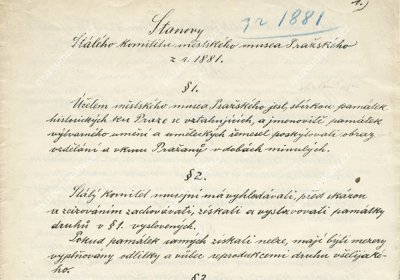 1.)
z r 1881
Stanovy
Stálého komitétu městského musea Pražského
z r. 1881.
§ 1.
Účelem městského musea Pražského jest, sbírkou památek
historických ku Praze se vztahujících, a jmenovitě památek
výtvarného umění a uměleckých řemesel poskytovati obraz
vzdělání a vkusu Pražanů v dobách minulých.
§ 2.
Stálý komitét musejní má vyhledávati, před zkázou
a zašantročením zachovávati, získati a vystavovati památky
druhů v § 1. vyslovených.
Pokud památek samých získati nelze, mají býti mezery
vyplňovány odlitky a vůbec reprodukcemi druhu všelijaké-
ho.
§ 3.